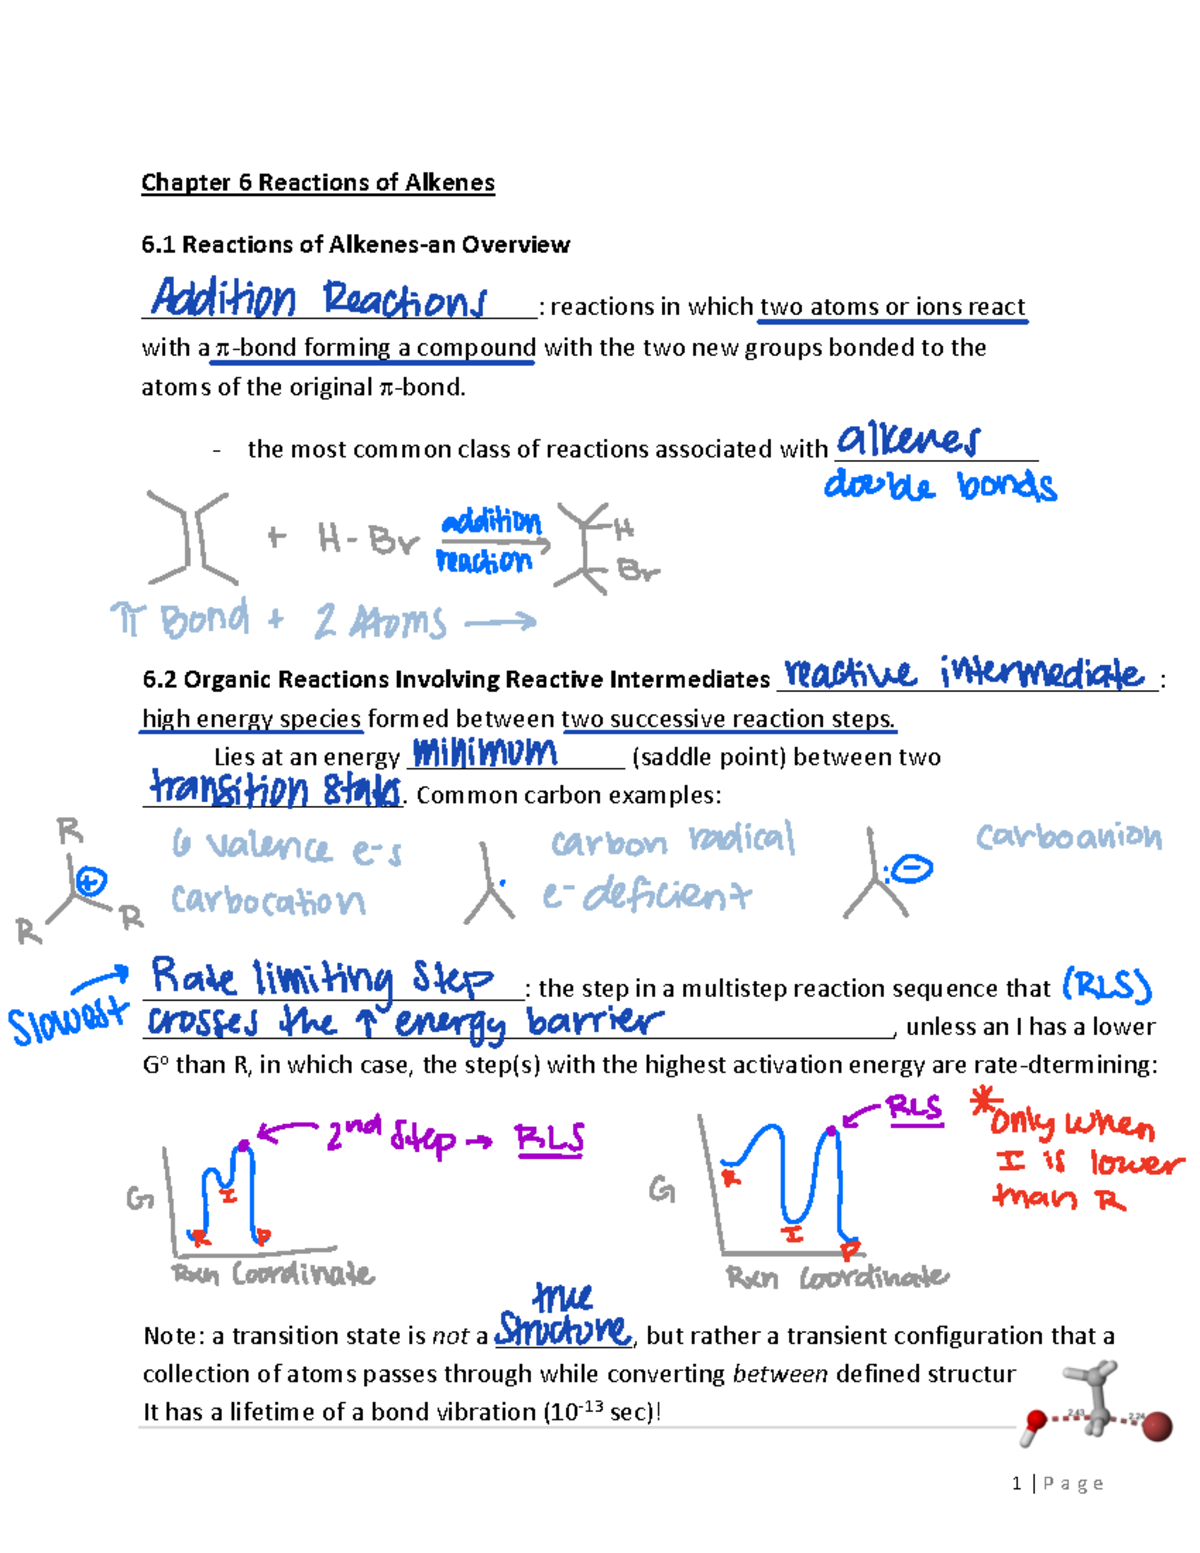 Chapter 6 Reactions of Alkenes
6.1 Reactions of Alkenes-an Overview
Addition Reactions : reactions in which two atoms or ions react
with a π-bond forming a compound with the two new groups bonded to the
atoms of the original π-bond.
- the most common class of reactions associated with alkenes
double bonds
+ H-Br addition reaction H Br
π Bond + 2 Atoms →
6.2 Organic Reactions Involving Reactive Intermediates reactive intermediate :
high energy species formed between two successive reaction steps.
Lies at an energy minimum (saddle point) between two
transition states. Common carbon examples:
R R R + 6 valence e-s carbon radical : - carboanion
carbocation e- deficient
slowest → Rate limiting Step : the step in a multistep reaction sequence that (RLS)
crosses the ↑ energy barrier , unless an I has a lower
Gº than R, in which case, the step(s) with the highest activation energy are rate-dtermining:
G R I P 2nd Step → RLS
Rxn Coordinate
G R I P RLS
Rxn Coordinate
* only when
I is lower
than R
true
Note: a transition state is not a structure, but rather a transient configuration that a
collection of atoms passes through while converting between defined structur
It has a lifetime of a bond vibration (10-13 sec)!
2.43 2.24
1 | P a g e